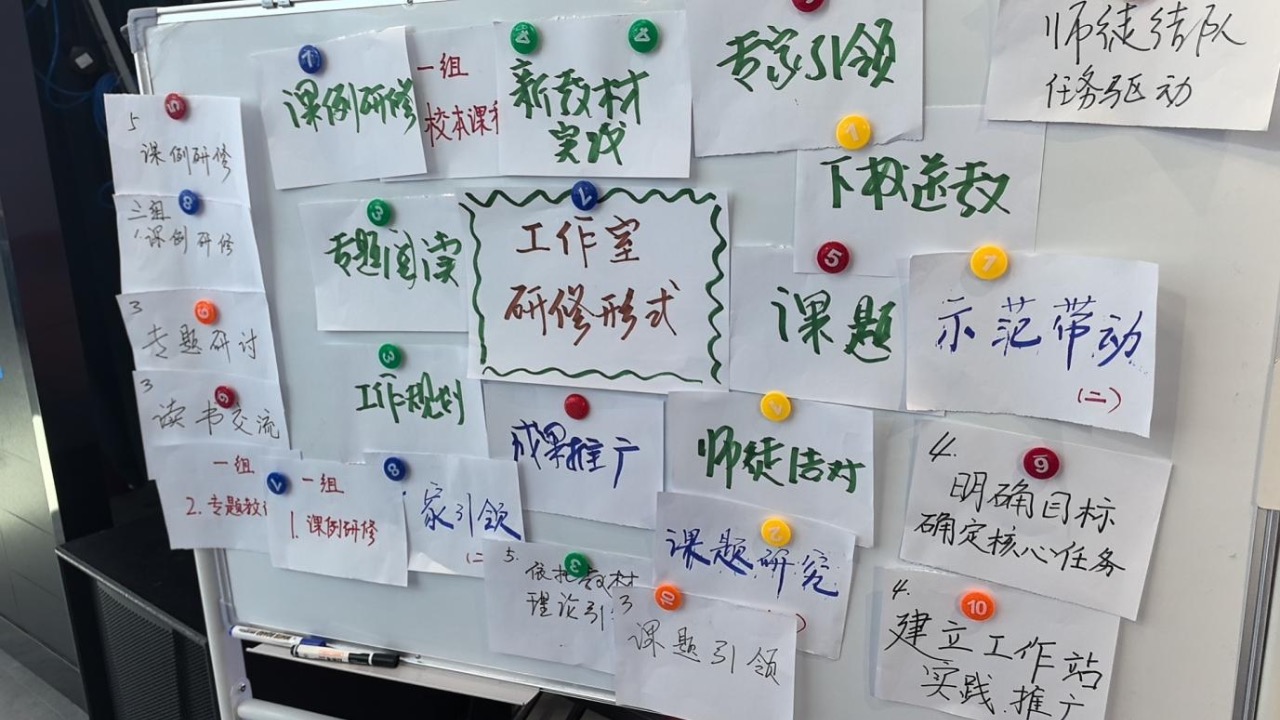 5
课例研修
三组
1课例研修
3
专题研讨
3
读书交流
一组
2.专题教
一组
1.课例研修
课例研修
一组
校本课
新教材
实践
专家引领
师徒结队
任务驱动
专题阅读
工作室
研修形式
下校送教
课题
示范带动
(二)
工作规划
成果推广
师徒结对
家引领
(二
5.
依托教材
理论引
课题研究
课题引领
4.
明确目标
确定核心任务
4.
建立工作站
实践推广